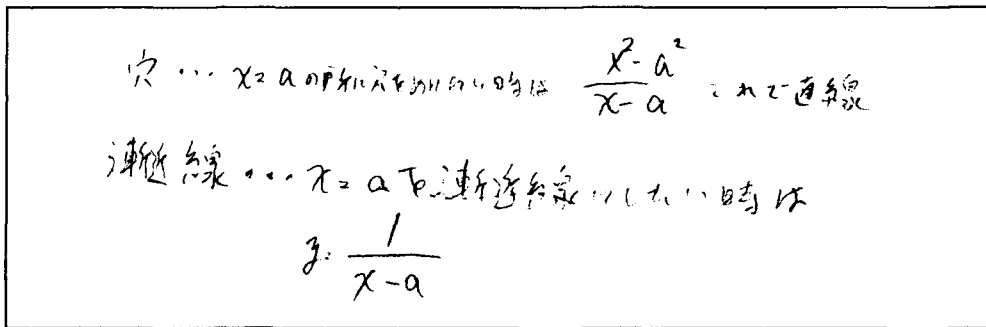 穴… x=aの所に穴をあけたい時は \frac{x^2-a^2}{x-a} これで直線
漸近線… x=aを漸近線にしたい時は
y=\frac{1}{x-a}